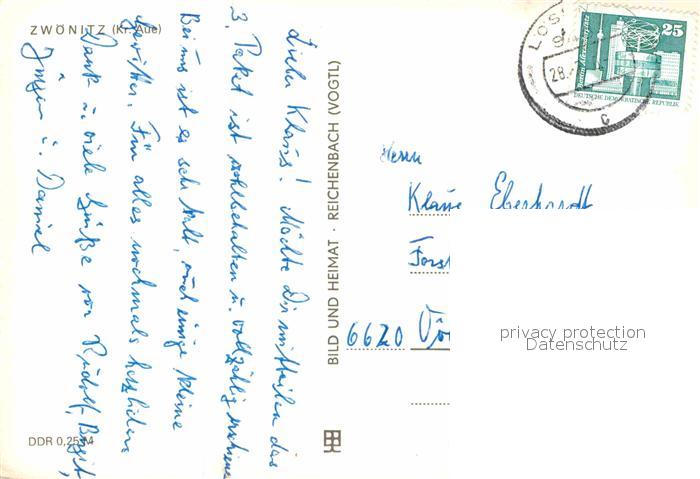 ZWÖNITZ (Kr. Aue)
Lieber Klaus! Möchte Dir mitteilen das
3. Paket ist wohlbehalten u. vollzählig erschienen
Bei uns ist es sehr kalt, auch einige kleine
Für alles nochmals herzlichen
Dank u. viele Grüße von Rudolf, Birgit,
Jürgen u. Daniel
DDR 0,25 M
BILD UND HEIMAT · REICHENBACH (VOGTL)
25
DEUTSCHE DEMOKRATISCHE REPUBLIK
28.
c
Herrn
Klaus Eberhardt
Forst
6620
privacy protection
Datenschutz